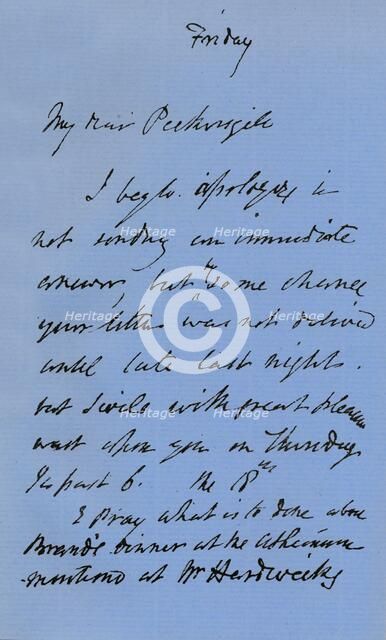 Friday
My dear Peckersgill
I beg to apologize in
not sending an immediate
answer, but by some chance
your letter was not delivered
until late last night.
but I will with great pleasure
wait upon you on Thursday
½ past 6. the 18th
I Pray what is to done about
Brand's dinner at the Athenaeum
mentiond at Mr Hardwicks